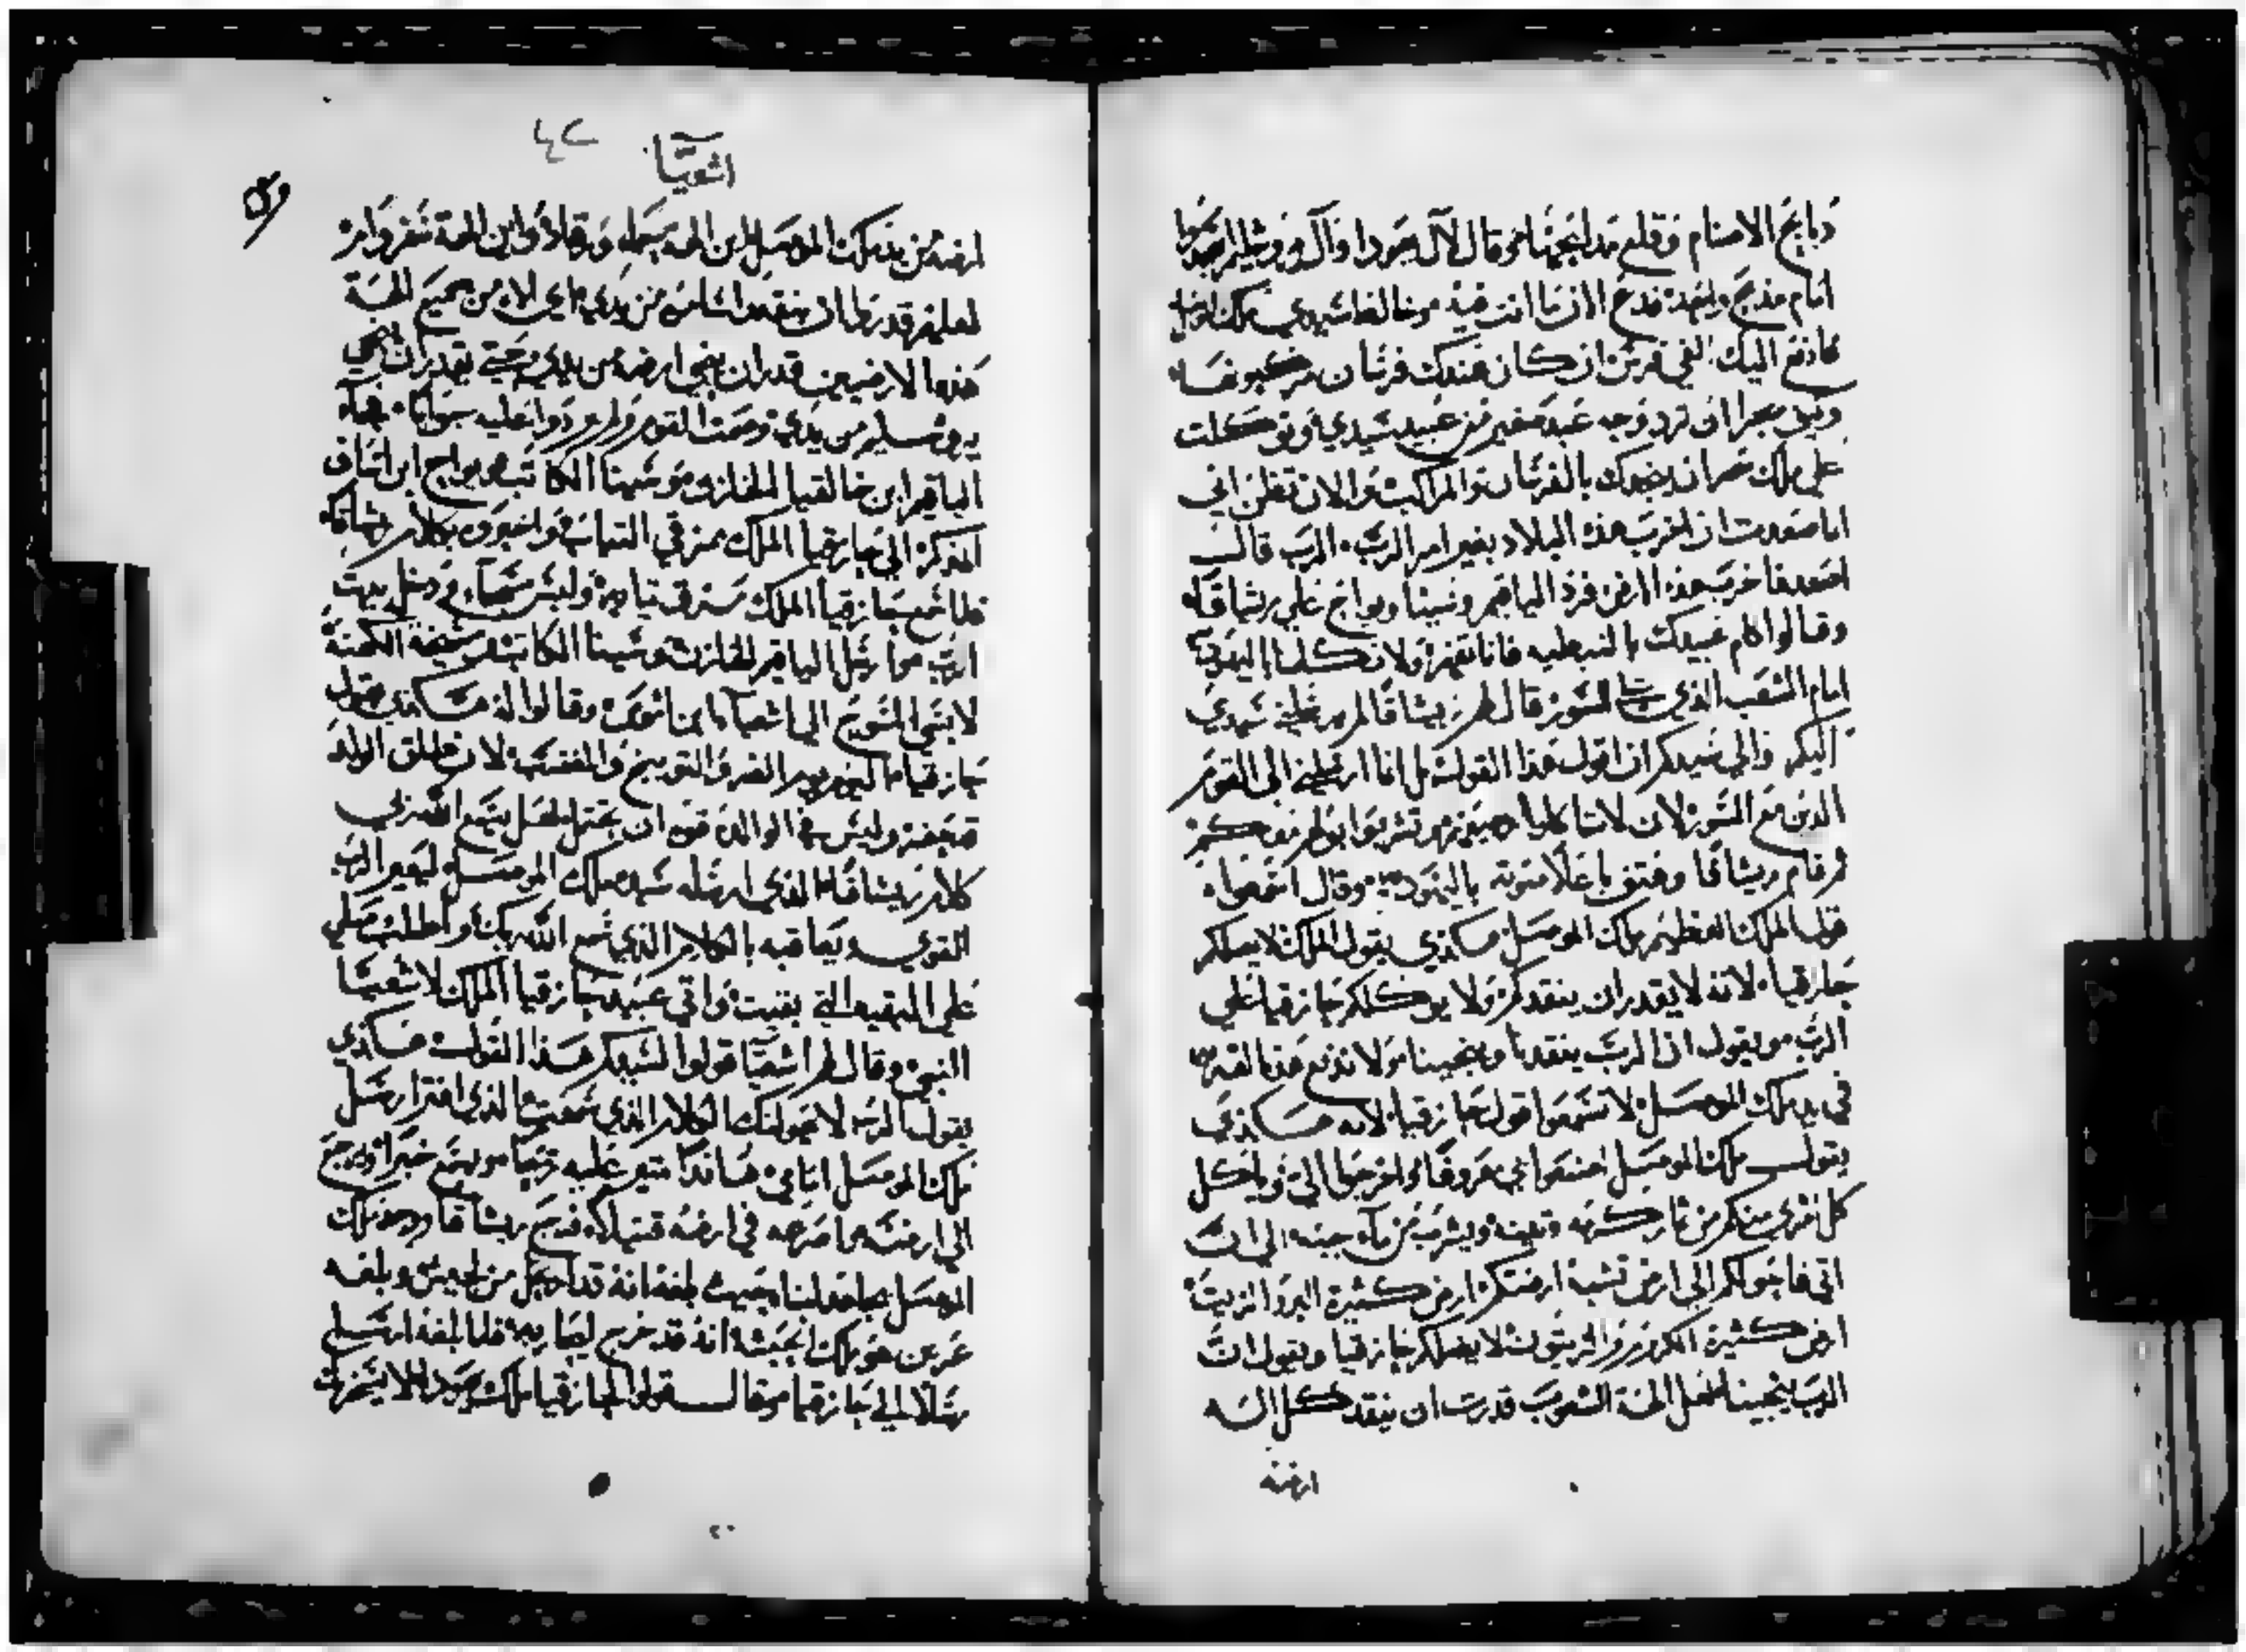 دبايح الاصنام وقلع مدابحها وقال لال يهودا وال يروشليم اسجدوا
امام مذبح واحد فدع الان ما انت فيه وخالط سيدي ملك الموصل
فادفع اليك الفي فرس ان كان عندك فرسان تركبونها
وكيف تجرا ان ترد وجه عبد صغير من عبيد سيدي وتوكلت
علي ملك مصر ان ينجدك بالفرسان والمراكب والان تظن اني
انا صعدت ان اخرب هذه البلاد بغير امر الرب الرب قال لي
اصعد فاخرب هذه الارض فرد الياقيم وشبنا ويواخ علي ريشاقا
وقالوا كلم عبيدك بالنبطيه فانا نفهم ولا تكلمنا باليهودية
امام الشعب الذي علي السور قال لهم ريشاقا لم يرسلني سيدي
اليكم والي سيدكم ان اقول هذا القول بل انما ارسلني الي القوم
الذين مع السور لان لا تاكلوا وتشربوا بولهم معكم
ثم قام ريشاقا وهتف باعلا صوته باليهودية وقال اسمعوا
قول الملك العظيم ملك الموصل هكذي يقول الملك لا يضلكم
حازقيا لانه لا يقدر ان ينقدكم ولا يوكلكم حازقيا علي
الرب ويقول ان الرب ينقدنا وينجينا ولا تدفع هذه القرية
في يد ملك الموصل لا تسمعوا قول حازقيا لانه هكذي
يقول ملك الموصل اصنعوا معي معروفا واخرجوا الي وياكل
كل امري منكم من ثمار كرمه وتينه ويشرب من ماء جبه الي ان
اتي فاحولكم الي ارض تشبه ارضكم ارض كثيرة البر والزيت
ارض كثيرة الكروم والزيتون لا يضلكم حازقيا ويقول ان
الرب ينجينا لعل الهة الشعوب قدرت ان ينقد كل اله
ارضه
اشعيا
٤٢
ارضه من يد ملك الموصل اين اله حماه ورفاد واين الهة سفروايم
لعلهم قدروا ان ينقدوا السامرة من يدي اي اله من جميع الهة
هذه الارضين قدر ان ينجي ارضه من يدي حتي يقدر ان ينجي
يروشليم من يدي وصمت القوم ولم يردوا عليه جوابا فجاء
الياقيم ابن خالقيا الخازن وشبنا الكاتب ويواخ ابن اساف
المذكر الي حازقيا الملك ممزقي الثياب واخبروه بكلام ريشاقا
فلما سمع حازقيا الملك مزق ثيابه ولبس مسحاء ودخل بيت
الرب وارسل الياقيم الخازن وشبنا الكاتب ومشيخة الكهنة
لابسي المسوح الي اشعيا ابن اموص وقالوا له هكذي يقول
حازقيا اليوم يوم الضر والتوبيخ والغضب لان طلق الولاد
قد حضر وليس في الوالدة قوة ان تحتمل لعل يسمع الله ربي
كلام ريشاقا الذي ارسله سيده ملك الموصل ليعير الرب
القوي ويعاقبه بالكلام الذي سمع الله ربك واطلب وصلي
علي البقيه التي بقيت واتي عبيد حازقيا الملك لاشعيا
النبي وقال لهم اشعيا قولوا لسيدكم هذا القول هكذي
يقول الرب لا يهولنك الكلام الذي سمعت الذي افترا رسل
ملك الموصل امامي هانذا مثير عليه ريحا ويسمع خبرا ويرجع
الي ارضه واصرعه في ارضه قتيلا فرجع ريشاقا ووجد ملك
الموصل يجاهد لبنا حيث بلغه انه قد ارتحل من لخيس وبلغه
عن ملك الحبشه انه قد خرج ليحاربه فلما بلغه ارسل
رسلا الي حازقيا وقال قولوا لحازقيا ملك يهودا لا يسخرنك